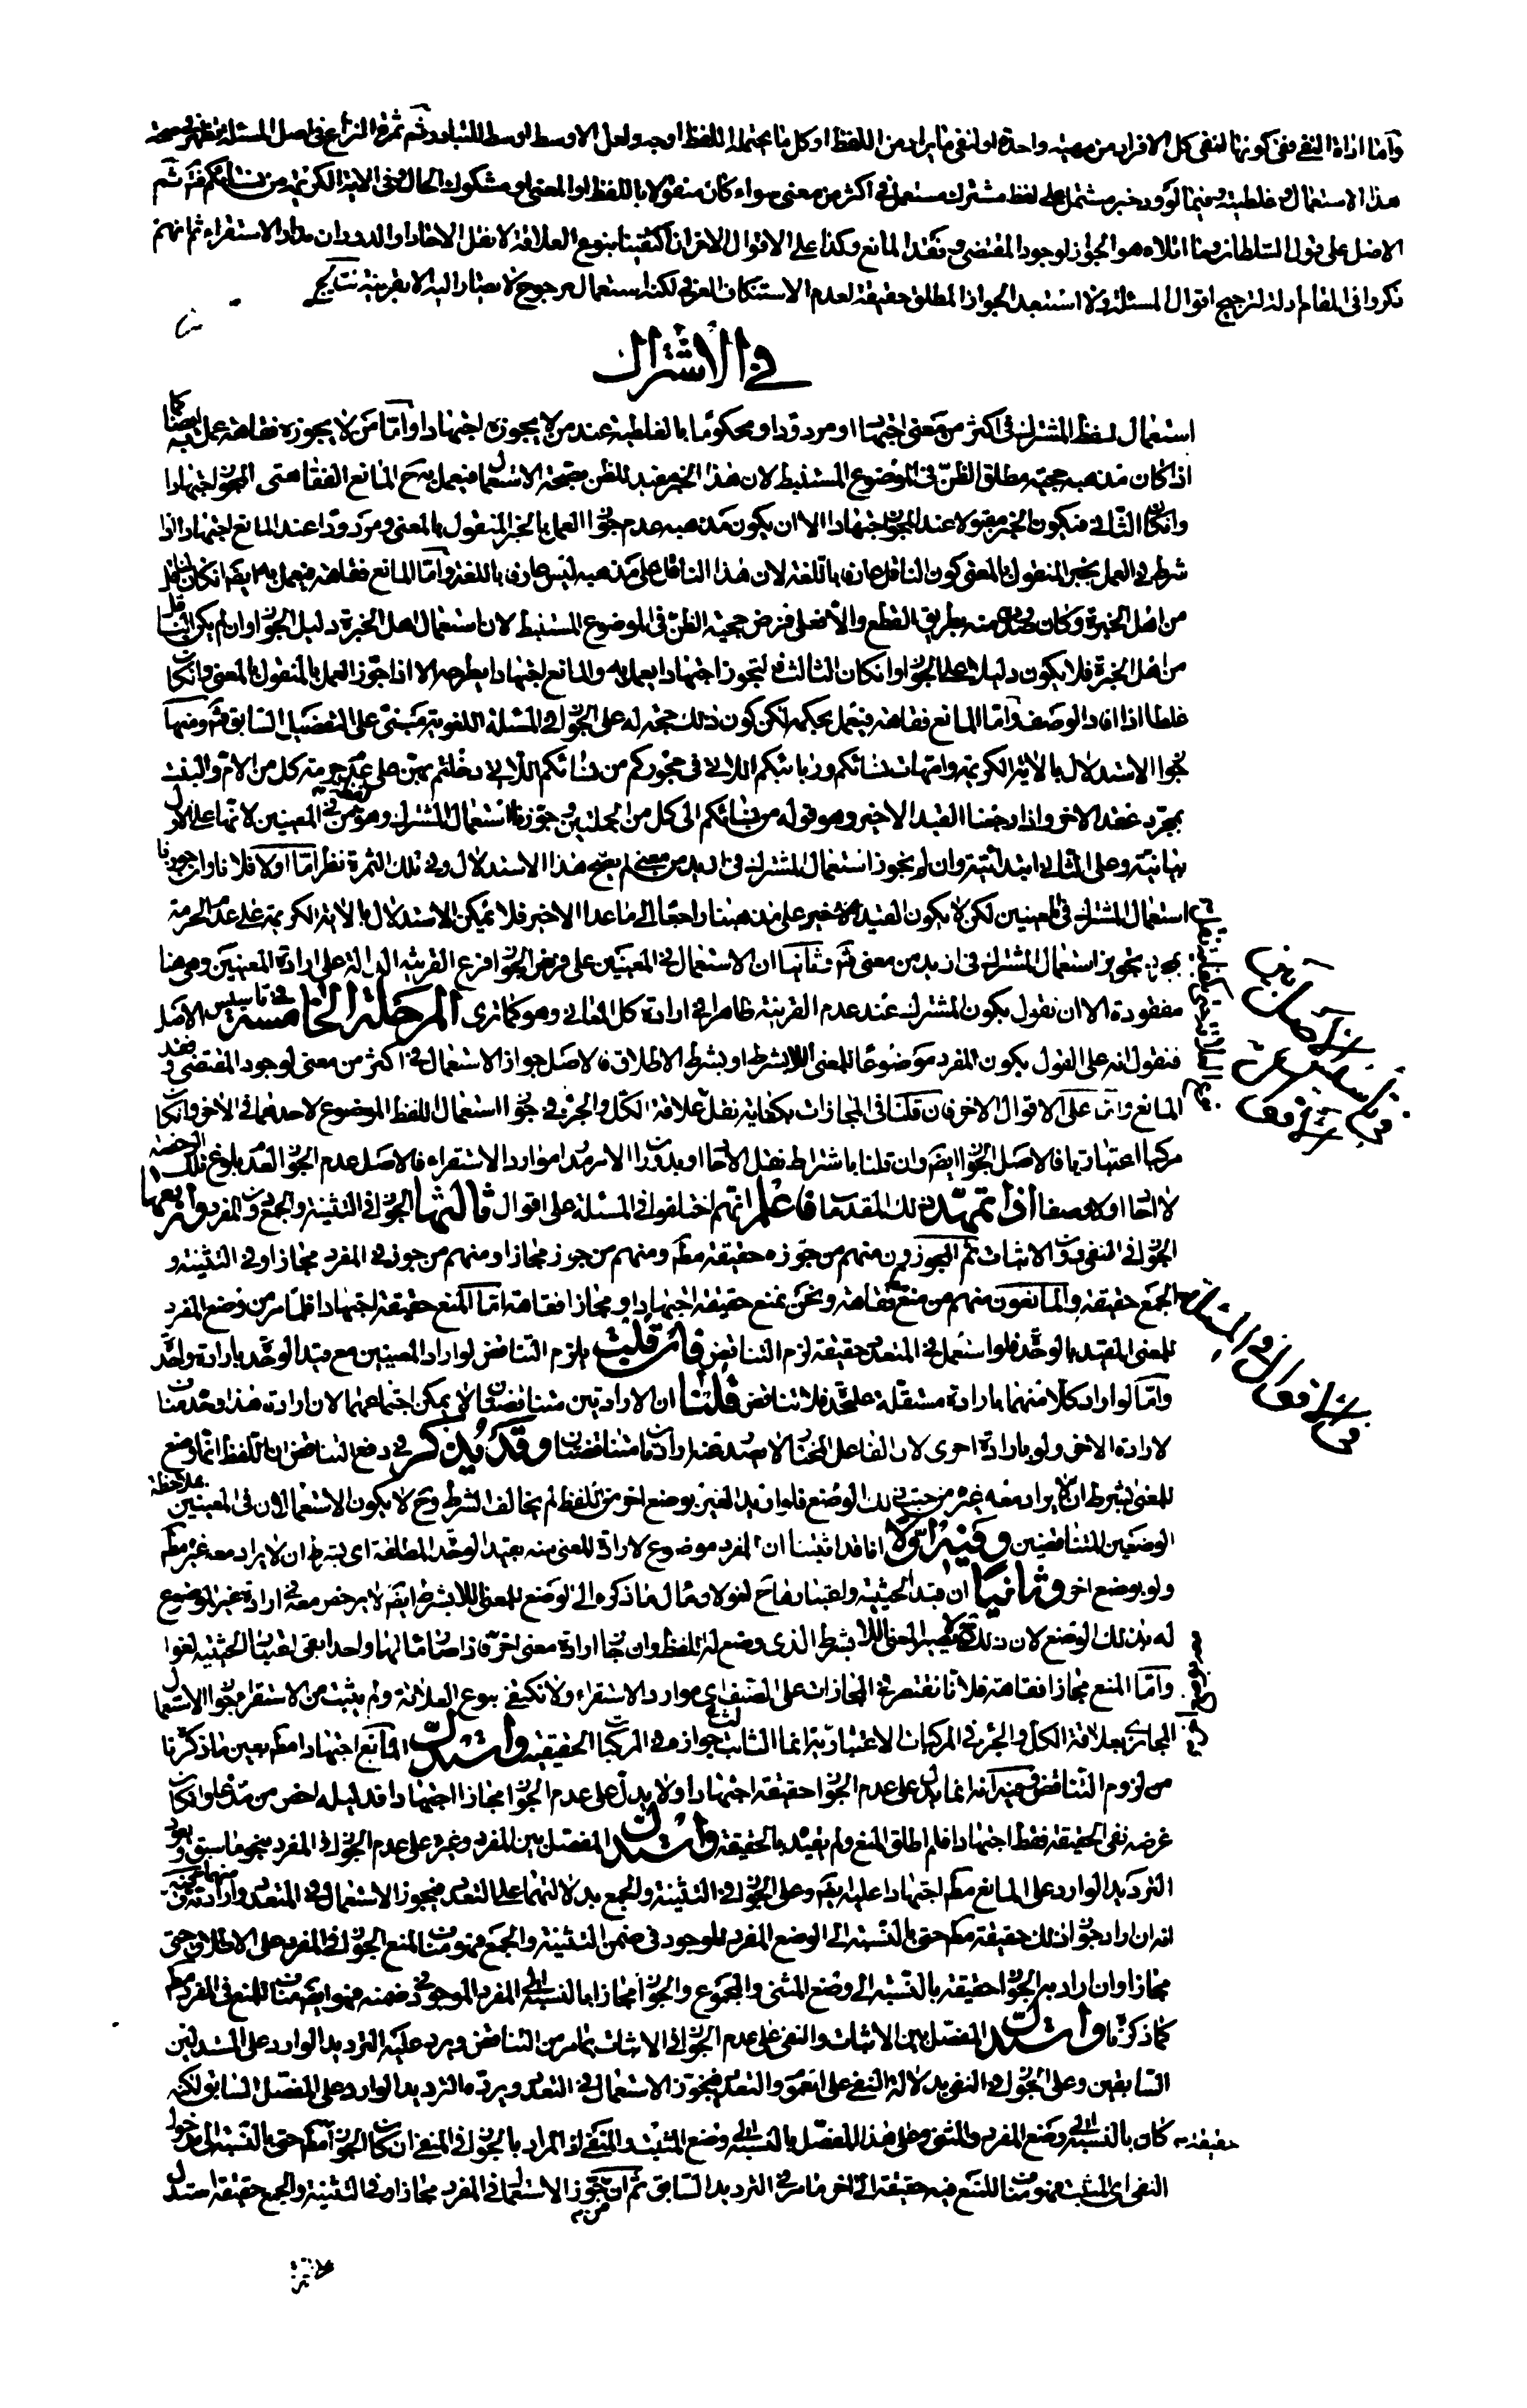 وأما اداة النفي ففي كونها لنفي كل الافراد من مهية واحدة او لنفي ما يراد من اللفظ او كل ما يحتمله اللفظ اوجه ولعل الاوسط اوسط للتبادر ثم ثمرة النزاع في اصل المسئلة تظهر في صحة
هذا الاستعمال وغلطيته وفيما لو ورد خبر مشتمل على لفظ مشترك مستعمل في اكثر من معنى سواء كان منقولا باللفظ او المعنى او مشكوك الحال وفي الاية الكريمة من نسائكم ثم
الاصل على قول السلطان وما تلاه هو الجواز لوجود المقتضى وفقد المانع وكذا على الاقوال الاخر ان اكتفينا بنوع العلاقة لا نقل الاحاد او الدوران مدار الاستقراء ثم انهم
ذكروا في المقام ادلة لترجيح اقوال المسئلة ولا استبعد الجواز المطلق حقيقة لعدم الاستنكاف العرفي لكنه استعمال مرجوح لا يصار اليه الا بقرينة نتايج
في الاشتراك
استعمال لفظ المشترك في اكثر من معنى اجتهادا او مردودا ومحكوما بالغلطية عند من لا يجوزه اجتهادا واما من لا يجوزه فقاهة عمل به ايضا كما
اذا كان مذهبه حجية مطلق الظن في الموضوع المستنبط لان هذا الخبر مفيد للظن بصحة الاستعمال فيعمل به ح المانع الفقاهتى المجوز اجتهادا
وان كان الثاني فيكون الخبر مقبولا عند المجوز اجتهادا الا ان يكون مذهبه عدم جواز العمل بالخبر المنقول بالمعنى ومردودا عند المانع اجتهادا اذا
شرط في العمل بخبر المنقول بالمعنى كون الناقل عارفا باللغة لان هذا الناقل على مذهبه ليس عارفا باللغة واما المانع فقاهة فيعمل به ايضا ان كان الناقل
من اهل الخبرة وكان منه بطريق القطع والا فعلى فرض حجية الظن في الموضوع المستنبط لان استعمال اهل الخبرة دليل الجواز وان لم يكن الناقل
من اهل الخبرة فلا يكون دليلا على الجواز وان كان الثالث فالمجوز اجتهادا يعمل به والمانع اجتهادا يطرحه الا اذا جوز العمل بالمنقول بالمعنى وان كان
غلطا اذا افاد الوصف واما المانع فقاهة فيعمل بحكمه لكن كون ذلك حجة له على الجواز في المسئلة اللغوية مبنى على التفصيل السابق ثم ومنها
جواز الاستدلال بالاية الكريمة وامهات نسائكم وربائبكم اللاتي في حجوركم من نسائكم اللاتي دخلتم بهن على عدم حرمة كل من الام والبنت
بمجرد عقد الاخر واذا رجعنا القيد الاخير وهو قوله من نسائكم الى كل من الجملتين وجوزنا استعمال المشترك وهو لفظة من في المعنيين لانها على الاول
بيانية وعلى الثاني ابتدائية وان لم يجوز استعمال المشترك في ازيد من معنى لم يصح هذا الاستدلال وفي تلك الثمرة نظر اما اولا فلانا وان جوزنا
استعمال المشترك في المعنيين لكن لا يكون القيد الاخير على مذهبنا راجعا الى ما عدا الاخير فلا يمكن الاستدلال بالاية الكريمة على عدم الحرمة
بمجرد تجويز استعمال المشترك في ازيد من معنى ثم وثانيا ان الاستعمال في المعنيين على فرض الجواز فرع القرينة الدالة على ارادة المعنيين وهي هنا
مفقودة الا ان نقول بكون المشترك عند عدم القرينة ظاهرا في ارادة كل المعاني وهو كما ترى المرحلة الخامسة في تاسيس الاصل
فنقول انه على القول بكون المفرد موضوعا للمعنى اللا بشرط او بشرط الاطلاق فالاصل جواز الاستعمال في اكثر من معنى لوجود المقتضى وفقد
المانع واما على الاقوال الاخر فان قلنا في المجازات بكفاية نقل علاقة الكل والجزء في جواز استعمال اللفظ الموضوع لاحدهما في الاخر وان كان
مركبا اعتباريا فالاصل الجواز ايضا وان قلنا باشتراط نقل الاحاد او بدوران الامر مدار موارد الاستقراء فالاصل عدم الجواز لعدم بلوغ تلك الرخصة
لا احادا ولا وصفا اذا تمهد تلك المقدمات فاعلم انهم اختلفوا في المسئلة على اقوال ثالثها الجواز في التثنية والجمع دون المفرد ورابعها
الجواز في النفي دون الاثبات ثم المجوزون منهم من جوزه حقيقة مطلقا ومنهم من جوز مجازا ومنهم من جوز في المفرد مجازا وفي التثنية و
الجمع حقيقة والمانعون منهم من منع فقاهة ونحن نمنع حقيقة اجتهادا ومجازا فقاهة اما المنع حقيقة اجتهادا فلما مر من وضع المفرد
للمعنى المقيد بالوحدة فلو استعمل في المتعدد حقيقة لزم التناقض فان قلت يلزم التناقض لو اراد المعنيين مع قيد الوحدة بارادة واحدة
واما لو اراد كلا منهما بارادة مستقلة على حدة فلا تناقض قلنا ان الارادتين متناقضتان لا يمكن اجتماعهما لان ارادة هذا وحده مناف
لارادة الاخر ولو بارادة اخرى لان الفاعل المختار لا يصدر عنه ارادتان متناقضتان وقد يذكر في دفع التناقض ان اللفظ انما وضع
للمعنى بشرط ان لا يراد معه غيره من حيث ذلك الوضع فلو اريد الغير بوضع اخر من اللفظ لم يخالف الشرط وح لا يكون الاستعمال الان في المعنيين بملاحظة
الوضعين للمتناقضين وفيه اولا انا قد اثبتنا ان المفرد موضوع لارادة المعنى منه بقيد الوحدة المطلقة اى بشرط ان لا يراد معه غير مطلقا
ولو بوضع اخر وثانيا ان قيد الحيثية واعتبارها ح لغو لان مآل ما ذكره الى الوضع للمعنى اللا بشرط ايضا لا يرخص معه في ارادة غير الموضوع
له بذلك الوضع لان ذلك لا يصير المعنى اللا بشرط الذى وضع له اللفظ وان جاز ارادة معنى اخر فاذا صار مآلهما واحدا بقى اعتبار الحيثية لغوا
واما المنع مجازا فقاهة فلانا نقتصر في المجازات على الصنف اى موارد الاستقراء ولا نكتفي بنوع العلاقة ولم يثبت من الاستقراء جواز الاستعمال
المجازى بعلاقة الكل والجزء في المركبات الاعتبارية انما الثابت جوازه في المركبات الحقيقية واستدل المانع اجتهادا مطلقا بعين ما ذكرنا
من لزوم التناقض وفيه انه انما يدل على عدم الجواز حقيقة اجتهادا ولا يدل على عدم الجواز مجازا اجتهادا فدليله اخص من مدعاه وان كان
غرضه نفى الحقيقة فقط اجتهادا فلم اطلق المنع ولم يقيده بالحقيقة واستدل المفصل بين المفرد وغيره على عدم الجواز في المفرد بنحو ما سبق ويعود
الترديد الوارد على المانع مطلقا اجتهادا عليه ايضا وعلى الجواز في التثنية والجمع بدلالتهما على التعدد فيجوز الاستعمال في المتعدد وارادته منهما وفيه
انه ان اراد جواز ذلك حقيقة مطلقا حتى بالنسبة الى الوضع المفرد الموجود في ضمن التثنية والجمع فهو مناف لمنع الجواز في المفرد على الاطلاق حتى
مجازا وان اراد به الجواز حقيقة بالنسبة الى وضع المثنى والمجموع والجواز مجازا بالنسبة الى المفرد الموجود في ضمنه فهو ايضا مناف للمنع في المفرد مطلقا
كما ذكرنا واستدل المفصل بين الاثبات والنفى على عدم الجواز في الاثبات بما مر من التناقض ويرد عليه الترديد الوارد على المستدلين
السابقين وعلى الجواز في النفي بدلالة النفي على العموم والتعدد فيجوز الاستعمال في التعدد ويرده الترديد الوارد على المفصل السابق لكنه
كان بالنسبة الى وضع المفرد والمثنى وعلى هذا المفصل بالنسبة الى وضع المثبت والمنفى اذ المراد بالجواز في المنفى ان كان الجواز مطلقا حتى بالنسبة الى مدخول
النفي اى المثبت فهو مناف للمنع فيه حقيقة الى اخر ما مر في الترديد السابق ثم ان من جوز الاستعمال في المفرد مجازا وفي التثنية والجمع حقيقة استدل